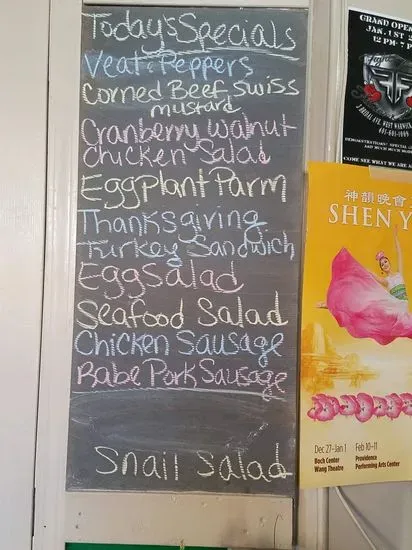 Today's Specials
Veat & Peppers
Corned Beef, Swiss
mustard
Cranberry Walnut
Chicken Salad
EggPlant Parm
Thanksgiving
Turkey Sandwich
Egg Salad
Seafood Salad
Chicken Sausage
Rabe Pork Sausage
Snail Salad
GRAND OPEN
JAN. 1ST 2
12 PM- 7 P
WEST WARWICK,
COME SEE WHAT WE ARE A
神韻晚會
SHEN Y
Dec 27-Jan 1
Boch Center
Wang Theatre
Feb 10-11
Providence
Performing Arts Center